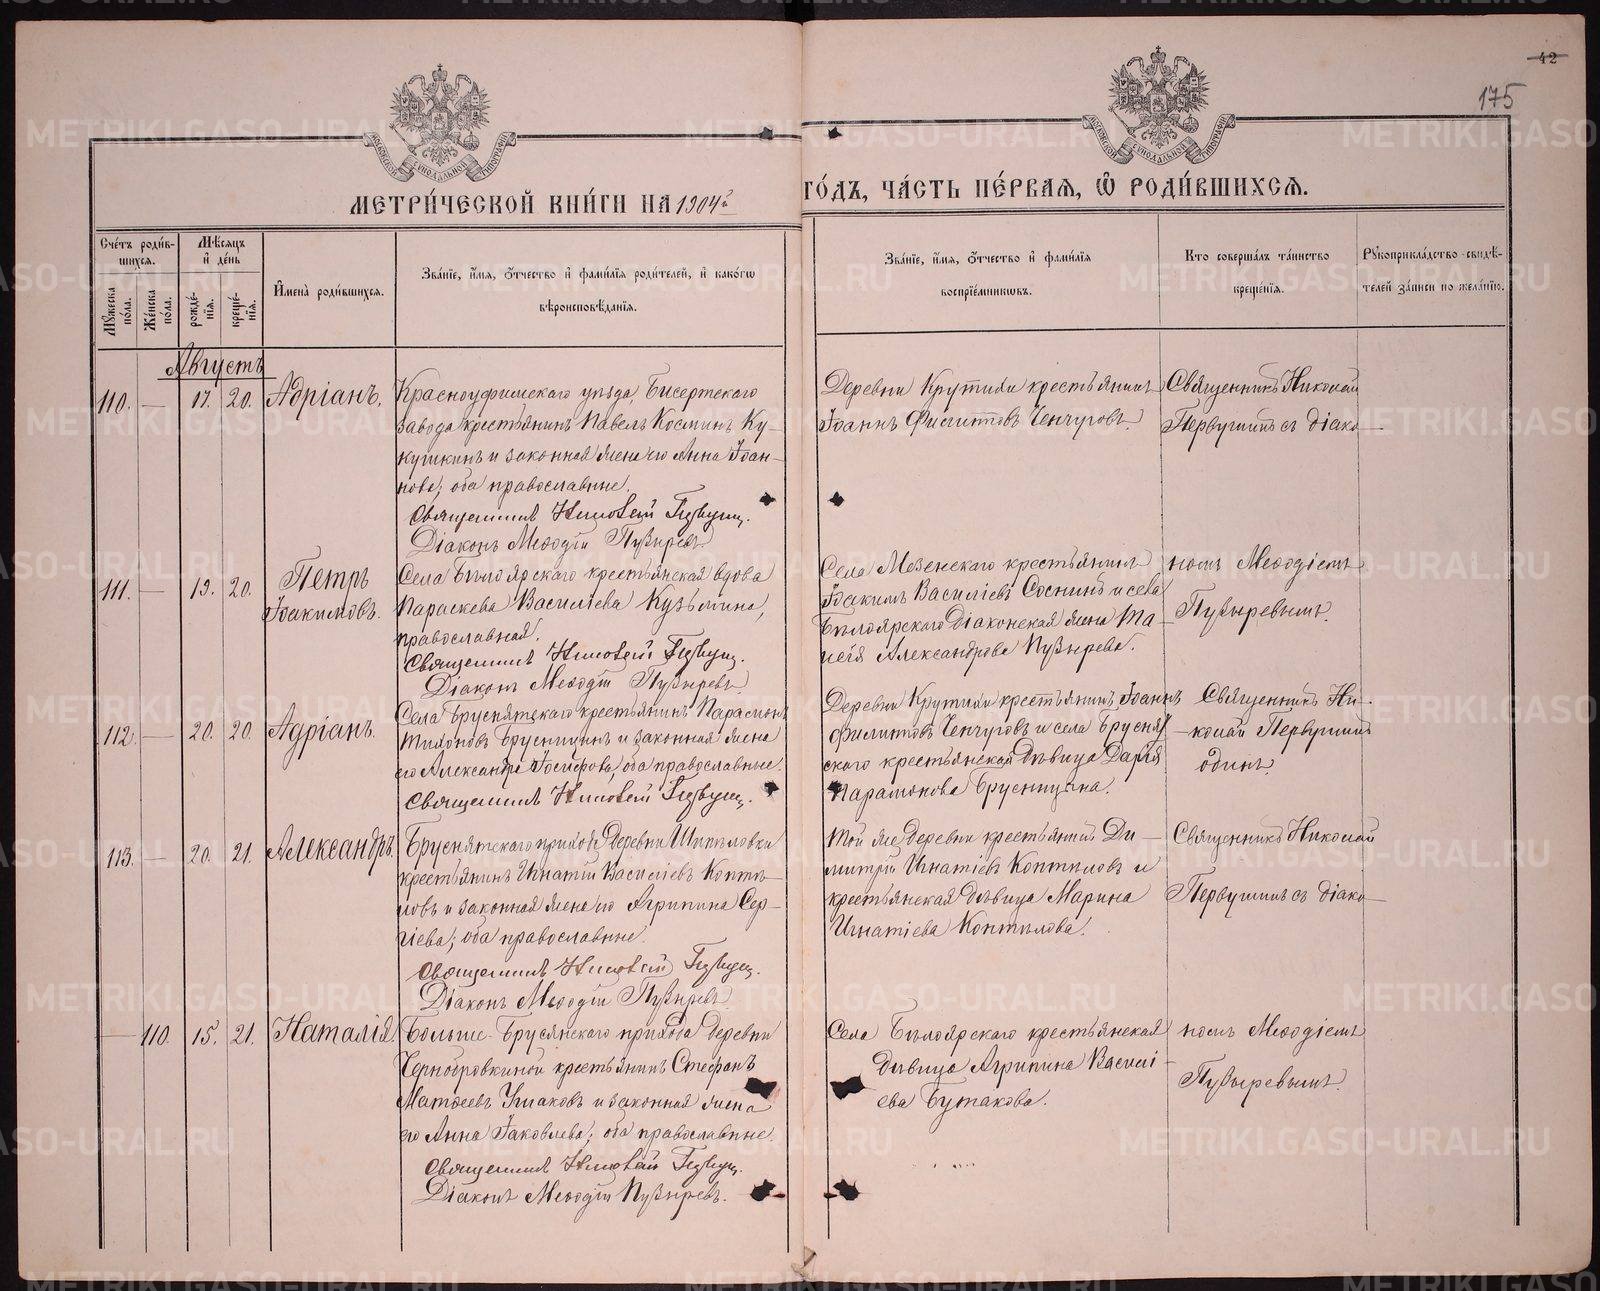 42
175
МЕТРИ́ЧЕСКОЙ КНИ́ГИ НА 1904й
ГО́ДЪ, ЧА́СТЬ ПЕ́РВАЯ, Ѡ РОДИ́ВШИХСЯ.
Сче́тъ роди́в-
шихся.
Мꙋ́жеска по́ла.
Же́нска по́ла.
Мѣ́сяцъ и҆ де́нь
рожде́-нїя.
креще́-нїя.
И҆мена̀ роди́вшихся.
Зва́нїе, и҆́мя, ѻ҆́тчество и҆ фами́лїя роди́телей, и҆ како́гѡ
вѣроисповѣ́данїя.
Зва́нїе, и҆́мя, ѻ҆́тчество и҆ фами́лїя
воспрїе́мникѡвъ.
Кто соверша́лъ та́инство
креще́нїя.
Рꙋкоприкла́дство свидѣ́-
телей за́писи по жела́нїю.
Августъ
110. — 17. 20. Адріанъ.
Красноуфимскаго уѣзда, Бисертскаго
завода крестьянинъ Павелъ Косминъ Ку-
кушкинъ и законная жена его Анна Іоан-
нова; оба православные.
Священникъ Николай
Діаконъ Меѳодій Пузыревъ.
Деревни Крутихи крестьянинъ
Іоаннъ Филипповъ Ченчуровъ.
Священникъ Николай
Первушинъ съ діако-
111. — 19. 20. Петръ
Іоакимовъ.
Села Бѣлоярскаго крестьянская вдова
Параскева Василіева Кузьмина,
православная.
Священникъ Николай
Діаконъ Меѳодій Пузыревъ.
Села Мезенскаго крестьянинъ
Іоакимъ Василіевъ Соснинъ и села
Бѣлоярскаго діаконская жена Та-
исія Александрова Пузырева.
номъ Меѳодіемъ
Пузыревымъ.
112. — 20. 20. Адріанъ.
Села Бруснятскаго крестьянинъ Парамонъ
Тихоновъ Брусницынъ и законная жена
его Александра Іосифова, оба православные.
Священникъ Николай
Деревни Крутихи крестьянинъ Іоаннъ
Филипповъ Ченчуровъ и села Бруснят-
скаго крестьянская дѣвица Дарія
Парамонова Брусницына.
Священникъ Ни-
колай Первушинъ
одинъ.
113. — 20. 21. Александръ.
Бруснятскаго прихода деревни Шипиловки
крестьянинъ Игнатій Василіевъ Коптѣ-
ловъ и законная жена его Агрипина Сер-
гіева; оба православные.
Священникъ Николай
Діаконъ Меѳодій Пузыревъ
Той же деревни крестьянинъ Ди-
митрій Игнатіевъ Коптѣловъ и
крестьянская дѣвица Марина
Игнатіева Коптѣлова.
Священникъ Николай
Первушинъ съ діако-
— 110. 15. 21. Наталія.
Больше-Брусянскаго прихода деревни
Чернобровкиной крестьянинъ Стефанъ
Матѳеевъ Ушаковъ и законная жена
его Анна Іаковлева; оба православные.
Священникъ Николай
Діаконъ Меѳодій Пузыревъ.
Села Бѣлоярскаго крестьянская
дѣвица Агрипина Василі-
ева Бутакова.
номъ Меѳодіемъ
Пузыревымъ.